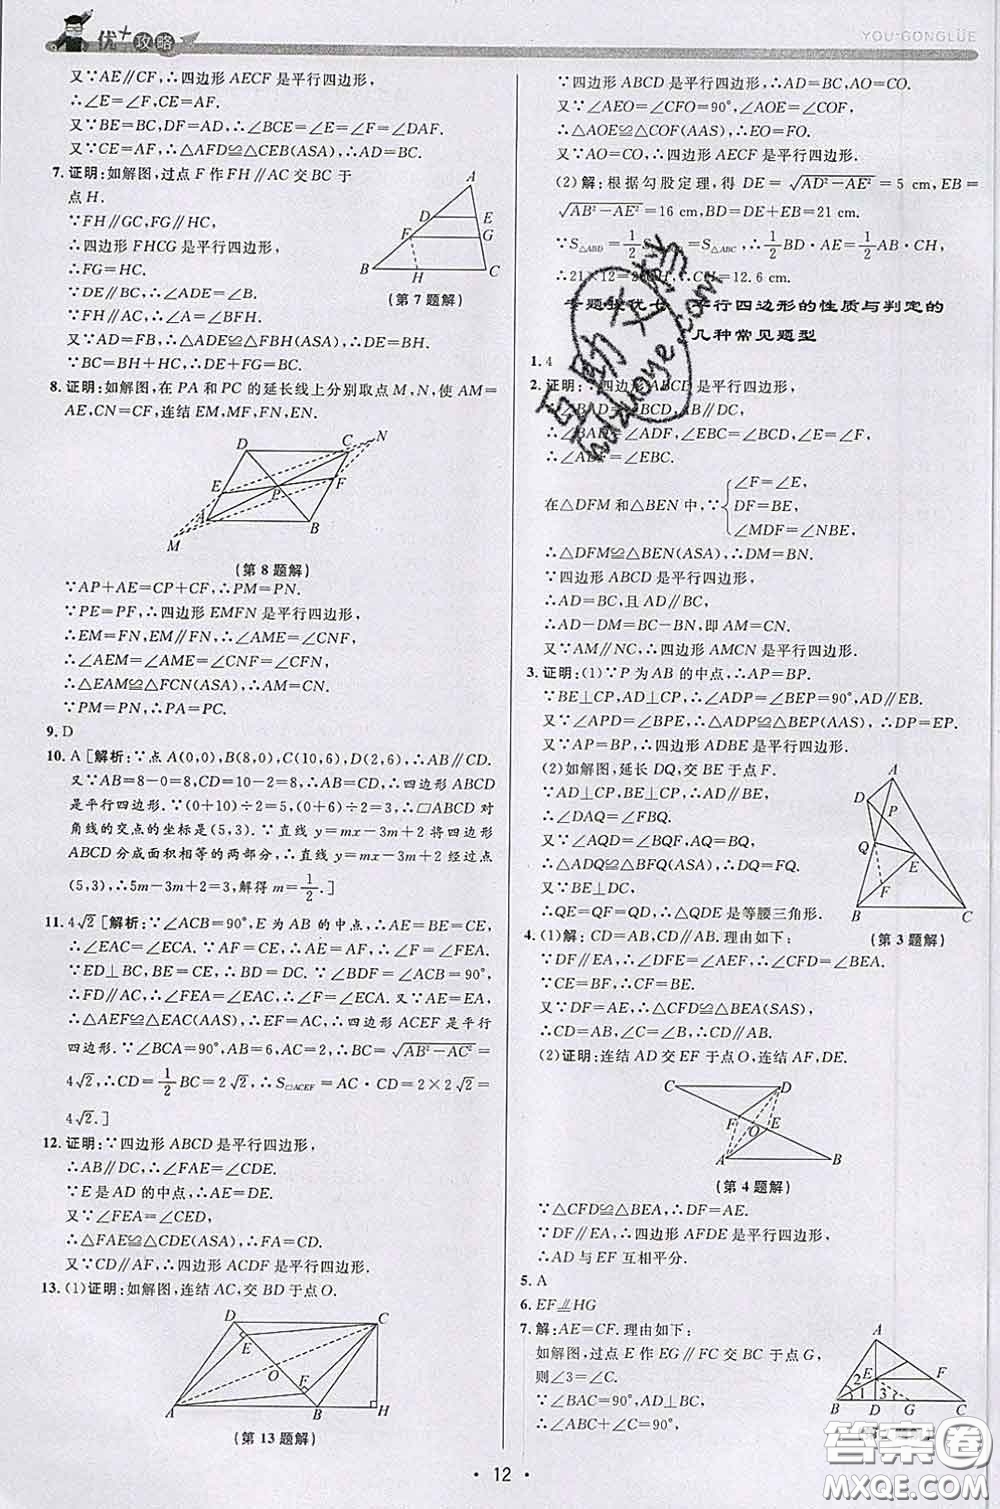 优+攻略
YOU-GONGLÜE
又∵AE∥CF,∴四边形 AECF 是平行四边形,
∴∠E=∠F,CE=AF.
又∵BE=BC,DF=AD,∴∠BCE=∠E=∠F=∠DAF.
又∵CE=AF,∴△AFD≌△CEB(ASA),∴AD=BC.
7. 证明:如解图,过点 F 作 FH∥AC 交 BC 于
点 H.
∵FH∥GC,FG∥HC,
∴四边形 FHCG 是平行四边形,
∴FG=HC.
∵DE∥BC,FH∥AC,
∴∠ADE=∠B,∠A=∠BFH.
又∵AD=FB,∴△ADE≌△FBH(ASA),∴DE=BH.
∵BC=BH+HC,∴BC=DE+FG.
A
D
E
F
G
B
H
C
(第 7 题解)
8. 证明:如解图,在 PA 和 PC 的延长线上分别取点 M,N,使 AM=
AE,CN=CF,连结 EM,MF,FN,EN.
D
C
N
E
F
P
A
B
M
(第 8 题解)
∵AP+AE=CP+CF,∴PM=PN.
∵PE=PF,∴四边形 EMFN 是平行四边形,
∴EM=FN,EM∥FN,∴∠AME=∠CNF,
∴∠AEM=∠AME=∠CNF=∠CFN,
∴△EAM≌△FCN(ASA),∴AM=CN.
∵PM=PN,∴PA=PC.
9. D
10. A [解析:∵点 A(0,0),B(8,0),C(10,6),D(2,6),∴AB∥CD.
又∵AB=8-0=8,CD=10-2=8,∴AB=CD,∴四边形 ABCD
是平行四边形.∵(0+10)÷2=5,(0+6)÷2=3,∴□ABCD 对
角线的交点的坐标是(5,3).∵直线 y=mx-3m+2 将四边形
ABCD 分成面积相等的两部分,∴直线 y=mx-3m+2 经过点
(5,3),∴5m-3m+2=3,解得 m=1/2.]
11. 4√2 [解析:∵∠ACB=90°,E 为 AB 的中点,∴AE=BE=CE,
∴∠EAC=∠ECA.∵AF=CE,∴AE=AF,∴∠F=∠FEA.
∵ED⊥BC,BE=CE,∴BD=DC.∵∠BDF=∠ACB=90°,
∴FD∥AC,∴∠FEA=∠EAC,∴∠F=∠ECA.又∵AE=EA,
∴△AEF≌△EAC(AAS),∴EF=AC,∴四边形 ACEF 是平行
四边形.∵∠BCA=90°,AB=6,AC=2,∴BC=√(AB²-AC²)=
4√2,∴CD=1/2BC=2√2,∴S□ACEF=AC·CD=2×2√2=
4√2.]
12. 证明:∵四边形 ABCD 是平行四边形,
∴AB∥DC,∴∠FAE=∠CDE.
∵E 是 AD 的中点,∴AE=DE.
又∵∠FEA=∠CED,
∴△FAE≌△CDE(ASA),∴FA=CD.
又∵CD∥AF,∴四边形 ACDF 是平行四边形.
13. (1)证明:如解图,连结 AC,交 BD 于点 O.
D
C
E
O
F
A
B
H
(第 13 题解)
∵四边形 ABCD 是平行四边形,∴AD=BC,AO=CO.
又∵∠AEO=∠CFO=90°,∠AOE=∠COF,
∴△AOE≌△COF(AAS),∴EO=FO.
又∵AO=CO,∴四边形 AECF 是平行四边形.
(2)解:根据勾股定理,得 DE=√(AD²-AE²)=5 cm,EB=
√(AB²-AE²)=16 cm,∴BD=DE+EB=21 cm.
∵S△ABD=1/2 S□ABCD=S△ABC,∴1/2BD·AE=1/2AB·CH,
∴21×12=20CH,∴CH=12.6 cm.
专题拔优七 平行四边形的性质与判定的
几种常见题型
1. 4
2. 证明:∵四边形 ABCD 是平行四边形,
∴∠BAD=∠BCD,AB∥DC,
∴∠BAD=∠ADF,∠EBC=∠BCD,∠E=∠F,
∴∠ADF=∠EBC.
在△DFM 和△BEN 中,∵
∠F=∠E,
DF=BE,
∠MDF=∠NBE,
∴△DFM≌△BEN(ASA),∴DM=BN.
∵四边形 ABCD 是平行四边形,
∴AD=BC,且 AD∥BC,
∴AD-DM=BC-BN,即 AM=CN.
又∵AM∥NC,∴四边形 AMCN 是平行四边形.
3. 证明:(1)∵P 为 AB 的中点,∴AP=BP.
∵BE⊥CP,AD⊥CP,∴∠ADP=∠BEP=90°,AD∥EB.
又∵∠APD=∠BPE,∴△ADP≌△BEP(AAS),∴DP=EP.
又∵AP=BP,∴四边形 ADBE 是平行四边形.
(2)如解图,延长 DQ,交 BE 于点 F.
∵AD⊥CP,BE⊥CP,∴AD∥BE,
∴∠DAQ=∠FBQ.
又∵∠AQD=∠BQF,AQ=BQ,
∴△ADQ≌△BFQ(ASA),∴DQ=FQ.
又∵BE⊥DC,
∴QE=QF=QD,∴△QDE 是等腰三角形.
A
D
P
Q
E
F
B
C
(第 3 题解)
4. (1)解:CD=AB,CD∥AB.理由如下:
∵DF∥EA,∴∠DFE=∠AEF,∴∠CFD=∠BEA.
∵CE=BF,∴CF=BE.
又∵DF=AE,∴△CFD≌△BEA(SAS),
∴CD=AB,∠C=∠B,∴CD∥AB.
(2)证明:连结 AD 交 EF 于点 O,连结 AF,DE.
C
D
F
O
E
A
B
(第 4 题解)
∵△CFD≌△BEA,∴DF=AE.
∵DF∥EA,∴四边形 AFDE 是平行四边形,
∴AD 与 EF 互相平分.
5. A
6. EF∥HG
7. 解:AE=CF.理由如下:
如解图,过点 E 作 EG∥FC 交 BC 于点 G,
则∠3=∠C.
∵∠BAC=90°,AD⊥BC,
∴∠ABC+∠C=90°,
A
E
F
2
1
3
B
D
G
C
互助文档
hdzuoye.com
答案圈
MXQE.COM
12